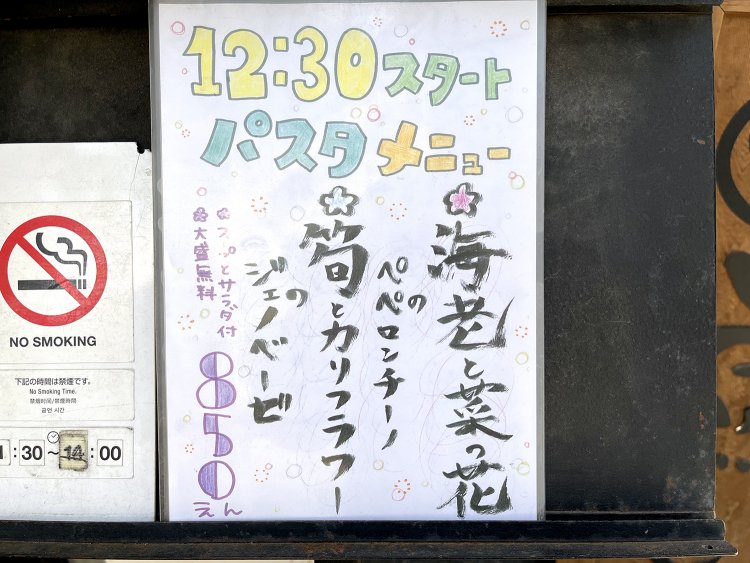 12:30スタート
パスタメニュー
海老と菜の花
のペペロンチーノ
筍とカリフラワー
のジェノベーゼ
スープとサラダ付
大盛無料
850えん
NO SMOKING
下記の時間は禁煙です。
No Smoking Time.
禁烟时间/禁煙時間
금연 시간
:30～14:00